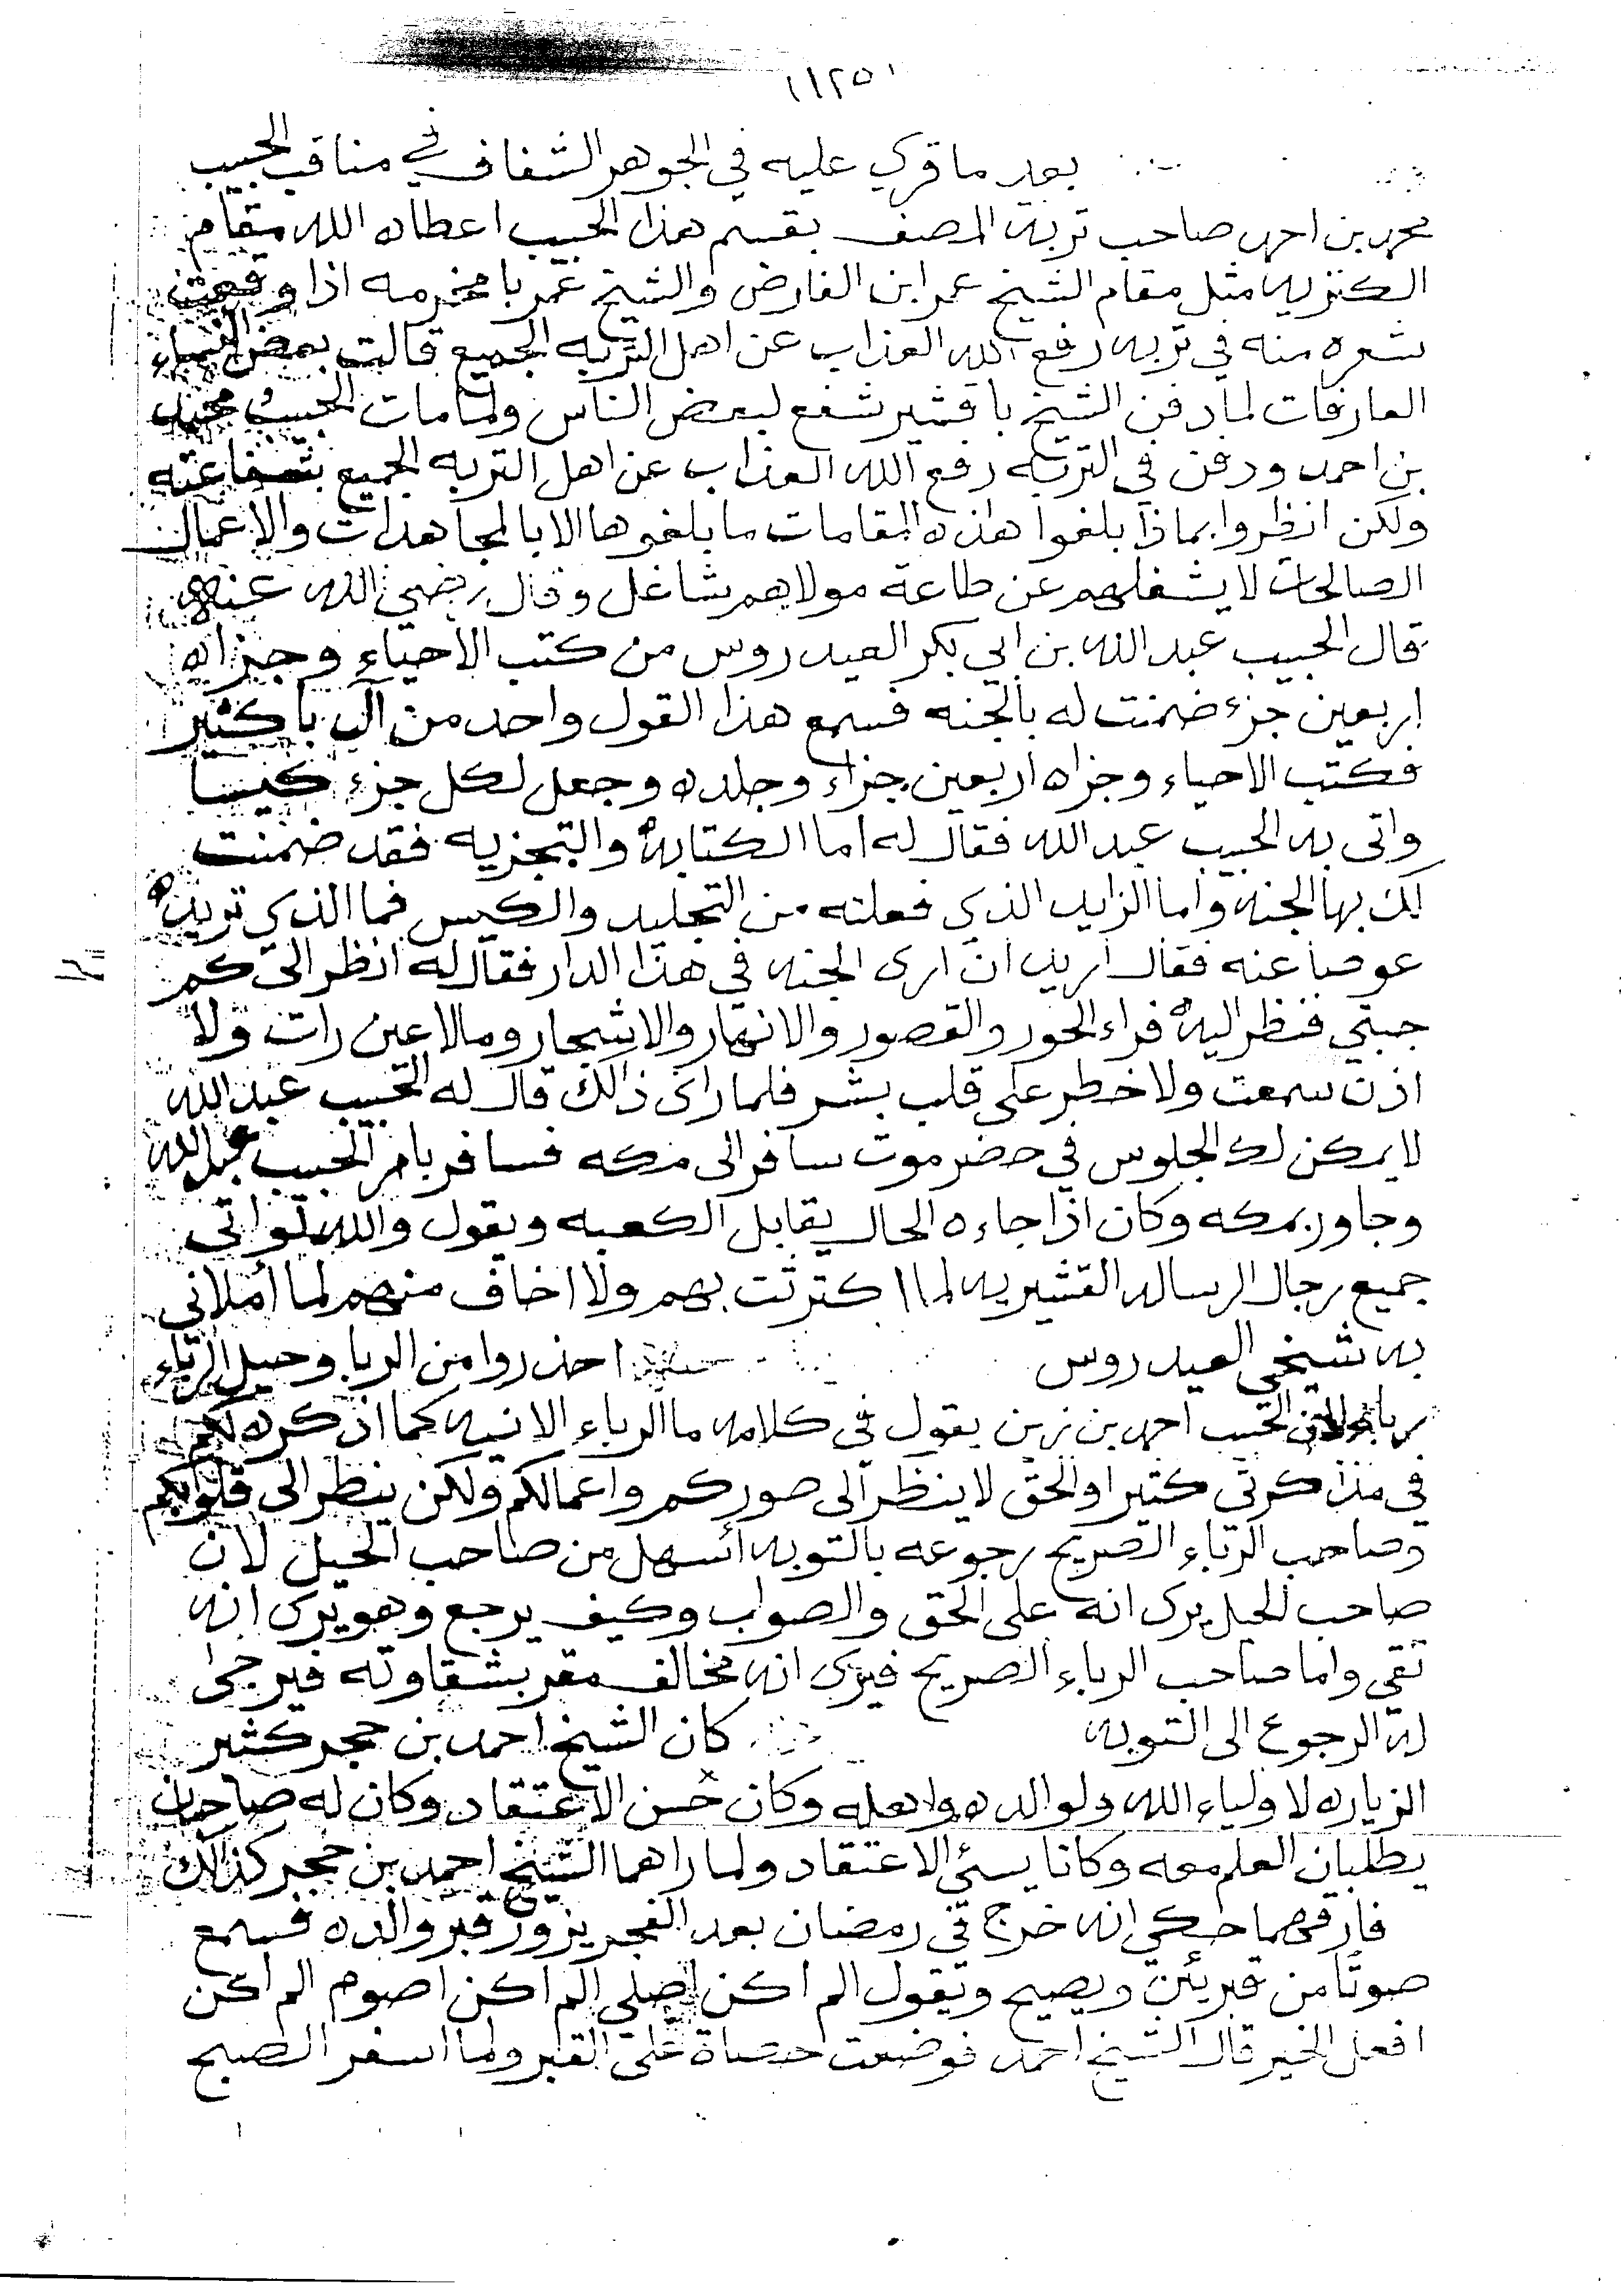 ١١٢٥
بعد ما قري عليه في الجوهر الشفاف في مناقب الحبيب
محمد بن احمد صاحب تربه المصف بقسم هذا الحبيب اعطاه الله مقام
الكنزيه مثل مقام الشيخ عمر ابن الفارض والشيخ عمر با مخرمه اذا وقعت
شعره منه في تربه رفع الله العذاب عن اهل التربه الجميع قالت بعض النساء
العارفات لما دفن الشيخ با قشير شفع لبعض الناس ولما مات الحبيب محمد
بن احمد ودفن في التربه رفع الله العذاب عن اهل التربه الجميع بشفاعته
ولكن انظروا بماذا بلغوا هذه المقامات ما بلغوها الا بالمجاهدات والاعمال
الصالحات لا يشغلهم عن طاعة مولاهم شاغل وقال رضي الله عنه
قال الحبيب عبد الله بن ابي بكر العيدروس من كتب الاحياء وجزاه
اربعين جزء ضمنت له بالجنه فسمع هذا القول واحد من آل با كثير
فكتب الاحياء وجزاه اربعين جزاء وجلده وجعل لكل جزء كيسا
واتى به الحبيب عبد الله فقال له اما الكتابه والتجزيه فقد ضمنت
لك بها الجنه واما الزايد الذي فعلته من التجليد والكيس فما الذي تريده
عوضا عنه فقال اريد ان ارى الجنه في هذا الدار فقال له انظر الى كم
جبتي فنظر اليه فراء الحور والقصور والانهار والاشجار وما لا عين رات ولا
اذن سمعت ولا خطر على قلب بشر فلما راى ذالك قال له الحبيب عبد الله
لا يمكن لك الجلوس في حضرموت سافر الى مكه فسافر بامر الحبيب عبد الله
وجاور بمكه وكان اذا جاءه الحال يقابل الكعبه ويقول والله لو اتى
جميع رجال الرساله القشيريه لما اكترثت بهم ولا اخاف منهم لما املاني
به شيخي العيدروس احذروا من الربا وحيل الرباء
الحبيب احمد بن زين يقول في كلامه ما الرباء الا نيه كما اذكره لكم
في مذاكرتي كثيرا والحق لا ينظر الى صوركم واعمالكم ولكن ينظر الى قلوبكم
وصاحب الرباء الصريح رجوعه بالتوبه اسهل من صاحب الحيل لان
صاحب الحيل يرى انه على الحق والصواب وكيف يرجع وهو يرى انه
تقي واما صاحب الرباء الصريح فيرى انه مخالف مقر بشقاوته فيرجى
له الرجوع الى التوبه كان الشيخ احمد بن حجر كثير
الزياره لاولياء الله ولوالده واهله وكان حسن الاعتقاد وكان له صاحبان
يطلبان العلم معه وكانا يسئي الاعتقاد ولما راهما الشيخ احمد بن حجر كذالك
فارقهما حكي انه خرج في رمضان بعد الفجر يزور قبر والده فسمع
صوتا من قبر يئن ويصيح ويقول الم اكن اصلي الم اكن اصوم الم اكن
افعل الخير قال الشيخ احمد فوضعت حصاة على القبر ولما اسفر الصبح